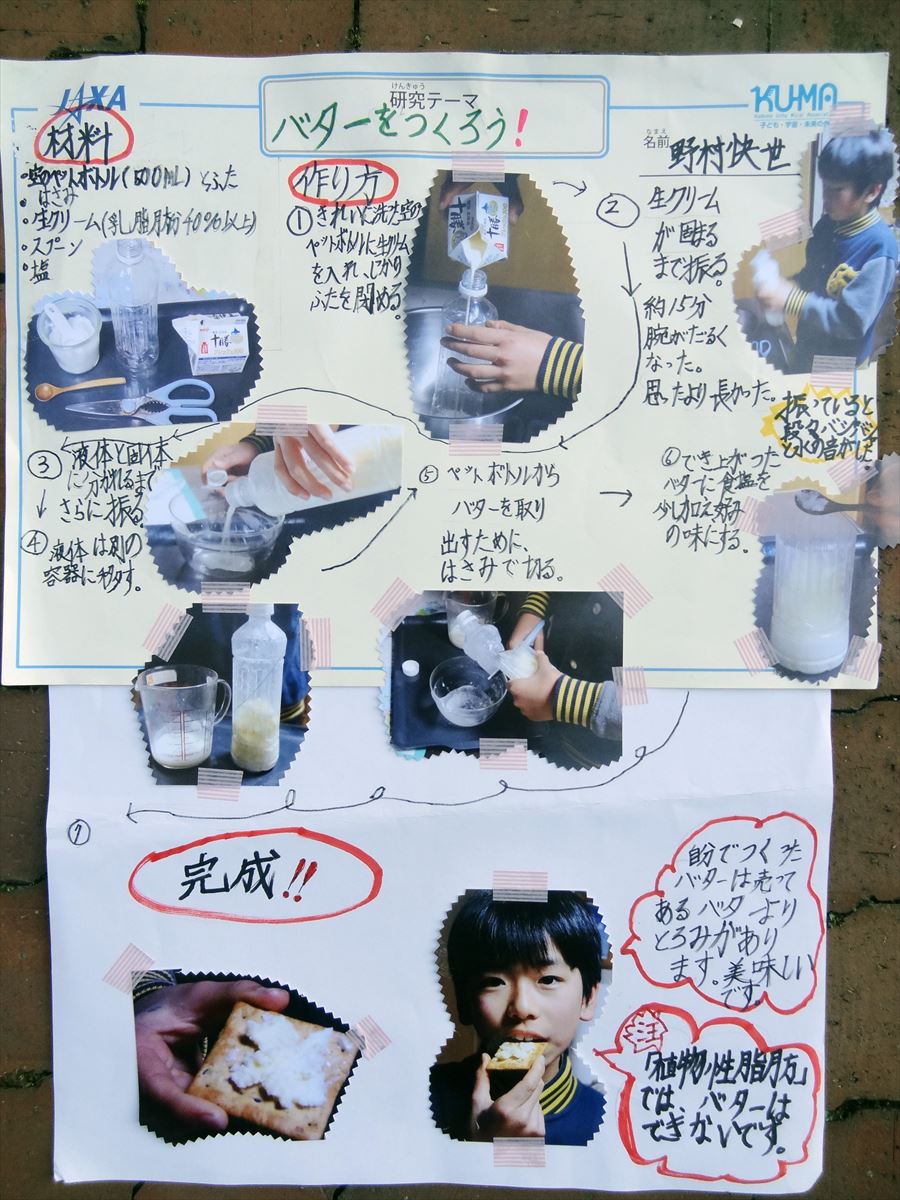 JAXA
けんきゅう
研究テーマ
バターをつくろう!
KUMA
子ども・宇宙・未来の会
なまえ
名前
野村快世
材料
・空のペットボトル(500mL)とふた
・はさみ
・生クリーム(乳脂肪分40%以上)
・スプーン
・塩
作り方
① きれいに洗た空の
ペットボトルに生クリーム
を入れ、しっかり
ふたを閉める。
②
生クリーム
が固まる
まで振る。
約15分
腕がだるく
なった。
思ったより長かった。
振っていると
段々バシャバシャ
と水の音がした。
③ 液体と固体
に分かれるまで
さらに振る。
④ 液体は別の
容器に移す。
⑤ ペットボトルから
バターを取り
出すために、
はさみで切る。
⑥ でき上がった
バターに食塩を
少し加え好み
の味にする。
十勝
⑦
完成!!
自分でつくった
バターは売って
あるバターより
とろみがあり
ます。美味しい
です。
注
「植物性脂肪」
では、バターは
できないです。